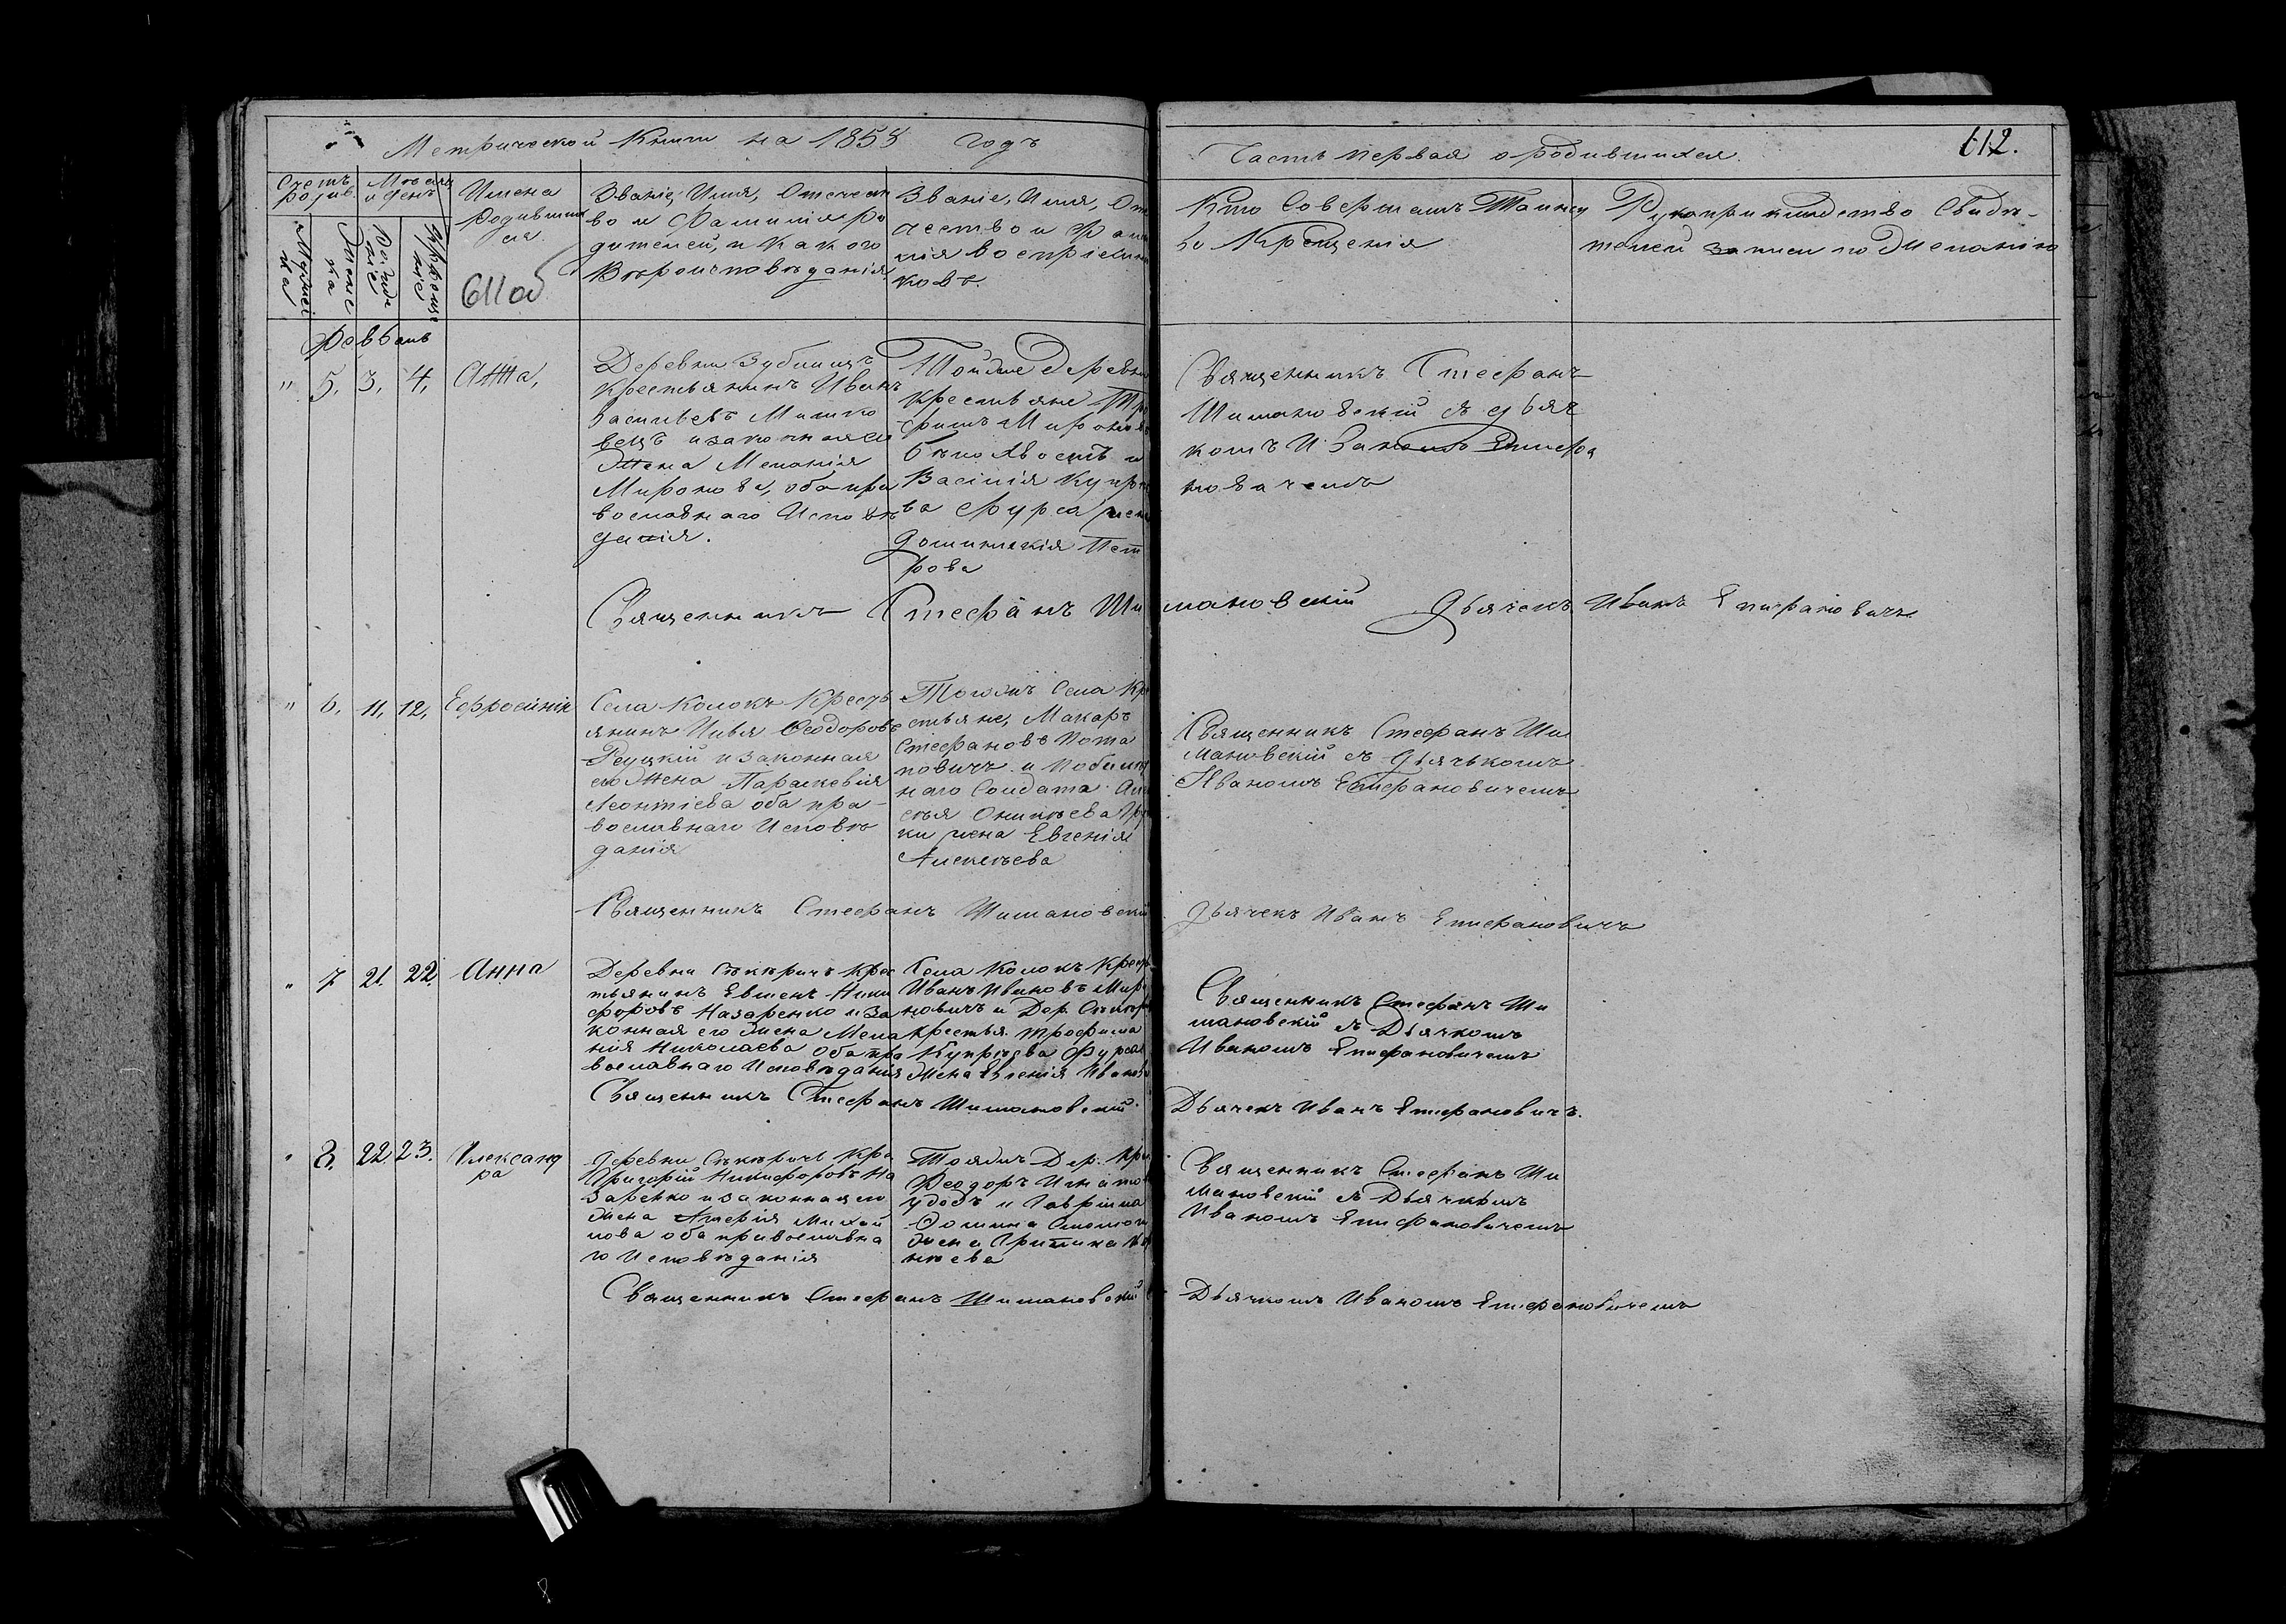 Метрической Книги на 1858 годъ
Часть первая о родившихся.
612.
Счетъ родив.
Мѣсяцъ и день
Мужеска
Женска
Рожденіе
Крещеніе
Имена
родивших
ся.
611об
Званіе, Имя, Отечест
во и Фамилія ро
дителей, и какого
Вѣроисповѣданія
Званіе, Имя, От
чество и Фами
лія воспріемни
ковъ.
Кто Совершалъ Таинст
во Крещенія
Рукоприкладство Свидѣ-
телей записи по желанію
" 5. 3. 4. Анна,
Деревни Зубилич
крестьянинъ Иванъ
Васильевъ
и законная его
Жена Меланія
Миронова, оба пра
вославнаго Исповѣ
данія.
Тойже деревни
крестьяне
Миронов
Бѣлохвостъ и
Василія Купр
ва Фурса жена
Петрова
Священникъ Стефанъ
Шимановскій съ дьяч
комъ Иваномъ Епифа
новичемъ
Священникъ Стефанъ Шимановскій Дьячекъ Иванъ Епифановичъ
" 6. 11. 12. Ефросинія
Села Колокъ Кресть
янинъ Илья Ѳеодоровъ
Рецкій и законная
его Жена Параскевія
Леонтіева оба пра-
вославнаго Исповѣ
данія
Тогожъ Села Кр
естьяне, Макаръ
Стефановъ Пота
повичъ и
наго Солдата Але
ксѣя
жена Евгенія
Алексѣева
Священникъ Стефанъ Ши
мановскій съ дьячькомъ
Иваномъ Епифановичемъ
Священникъ Стефанъ Шимановскій дьячекъ Иванъ Епифановичъ
" 7 21. 22. Анна
Деревни Сѣкѣричъ Крес
тьянинъ Евменъ Ники
форовъ Назаренко и за
конная его Жена Мела
нія Николаева оба пра
вославнаго Исповѣданія
Села Колокъ Крест
Иванъ Ивановъ Мир
новичъ и Дер. Сѣкѣр
крестья. Трофима
Купріева Фурса
Жена Евгенія Иванова
Священникъ Стефанъ Ши
мановскій съ Дьячкомъ
Иваномъ Епифановичемъ
Священникъ Стефанъ Шимановскій. Дьячекъ Иванъ Епифановичъ.
" 8. 22. 23. Александ
ра
Деревни Сѣкѣричъ Кре
Григорій Никифоровъ На
заренко и законная его
Жена Михай
лова оба православна
го Исповѣданія
Тояжъ Дер. Кре
Ѳеодоръ Игнатов
Удодъ и Гавріила
жена
Священникъ Стефанъ Ши
мановскій съ Дьячкомъ
Иваномъ Епифановичемъ
Священникъ Стефанъ Шимановскій Дьячкомъ Иваномъ Епифановичемъ